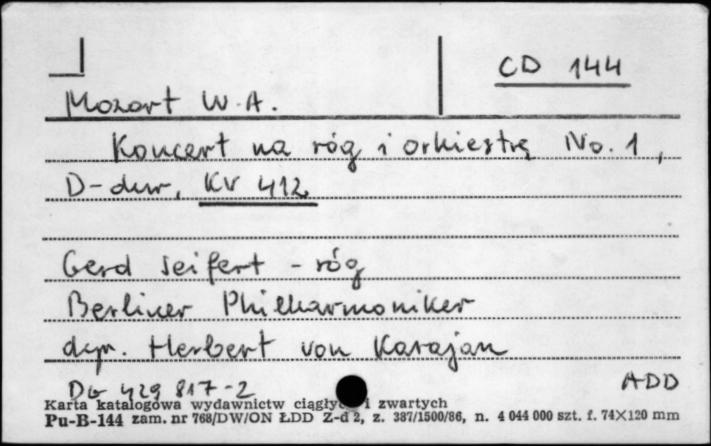 CD 144
Mozart W.A.
Koncert na róg i orkiestrę No. 1,
D-dur, KV 412
Gerd Seifert - róg
Berliner Philharmoniker
dyr. Herbert von Karajan
DG 429 817-2 ADD
Karta katalogowa wydawnictw ciągłyc i zwartych
Pu-B-144 zam. nr 768/DW/ON ŁDD Z-d 2, z. 387/1500/86, n. 4 044 000 szt. f. 74×120 mm